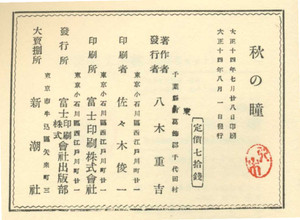 秋の瞳
大正十四年七月廿八日印刷
大正十四年八月一日發行
定價七拾錢
千葉縣東葛飾郡千代田村
著作者
發行者
八木重吉
東京小石川區西江戸川町廿一
印刷者
佐々木俊一
東京小石川區西江戸川町廿一
印刷所
富士印刷株式會社
東京小石川區西江戸川町廿一
發行所
富士印刷株式會社出版部
東京市牛込區矢來町三
大賣捌所
新潮社